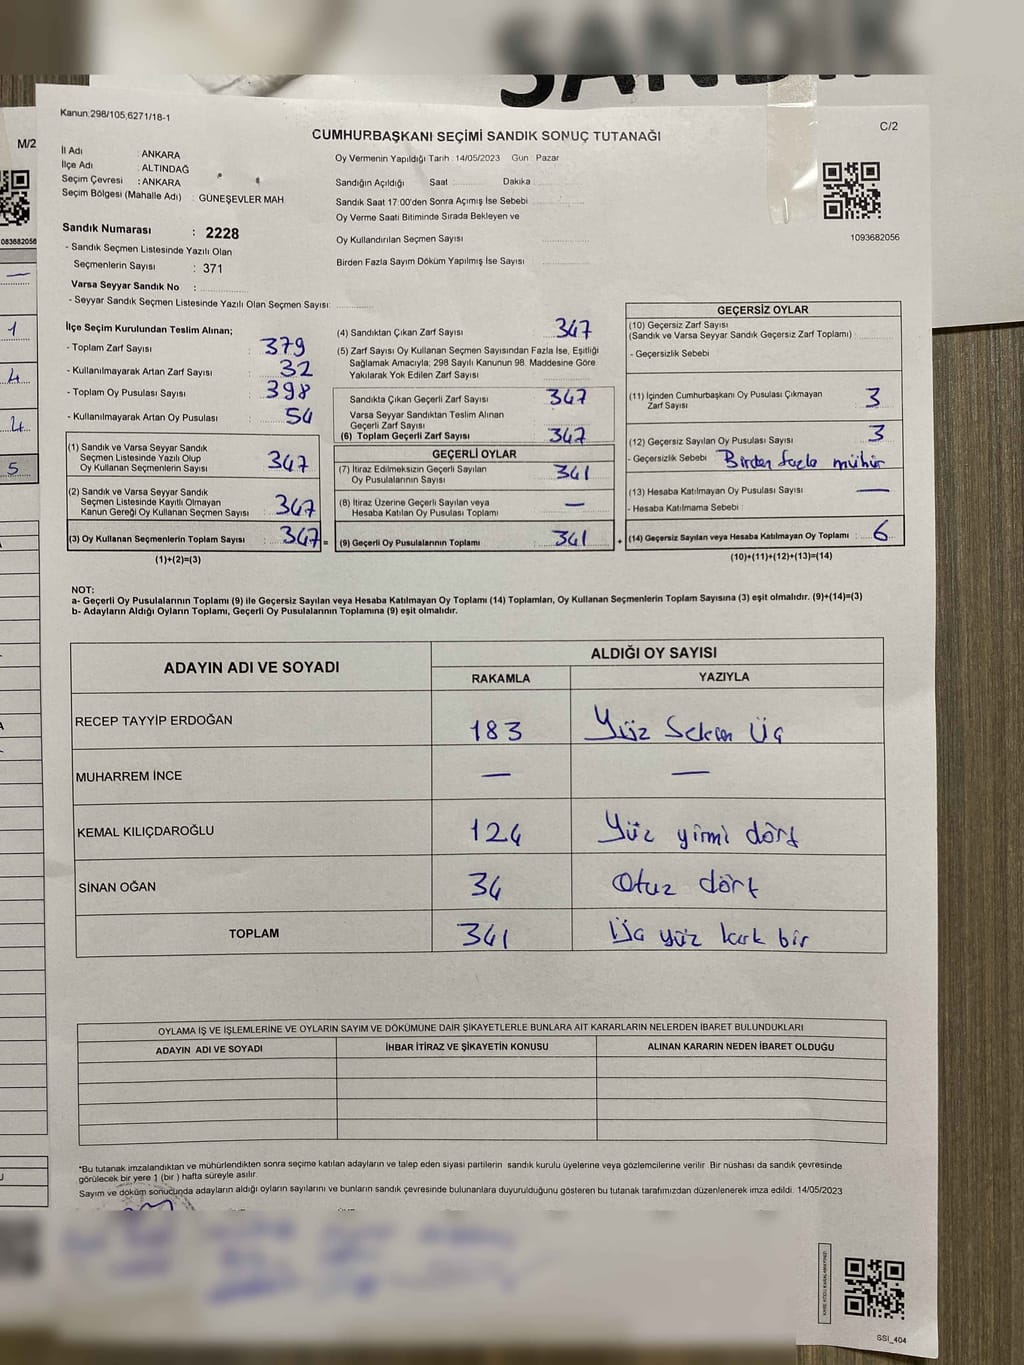 SANDIK
SANDIK
Kanun:298/105,6271/18-1
C/2
M/2
CUMHURBAŞKANI SEÇİMİ SANDIK SONUÇ TUTANAĞI
İl Adı : ANKARA
İlçe Adı : ALTINDAĞ
Seçim Çevresi : ANKARA
Seçim Bölgesi (Mahalle Adı) : GÜNEŞEVLER MAH
Oy Vermenin Yapıldığı Tarih :14/05/2023 Gün : Pazar
Sandığın Açıldığı Saat : Dakika :
Sandık Saat 17:00'den Sonra Açılmış İse Sebebi
Oy Verme Saati Bitiminde Sırada Bekleyen ve
Oy Kullandırılan Seçmen Sayısı
Birden Fazla Sayım Döküm Yapılmış İse Sayısı
1093682056
083682056
Sandık Numarası : 2228
- Sandık Seçmen Listesinde Yazılı Olan
Seçmenlerin Sayısı : 371
Varsa Seyyar Sandık No :
- Seyyar Sandık Seçmen Listesinde Yazılı Olan Seçmen Sayısı:
İlçe Seçim Kurulundan Teslim Alınan;
- Toplam Zarf Sayısı : 379
- Kullanılmayarak Artan Zarf Sayısı : 32
- Toplam Oy Pusulası Sayısı : 398
- Kullanılmayarak Artan Oy Pusulası : 54
(1) Sandık ve Varsa Seyyar Sandık
Seçmen Listesinde Yazılı Olup
Oy Kullanan Seçmenlerin Sayısı : 347
(2) Sandık ve Varsa Seyyar Sandık
Seçmen Listesinde Kayıtlı Olmayan
Kanun Gereği Oy Kullanan Seçmen Sayısı : 347
(3) Oy Kullanan Seçmenlerin Toplam Sayısı : 347 =
(1)+(2)=(3)
(4) Sandıktan Çıkan Zarf Sayısı : 347
(5) Zarf Sayısı Oy Kullanan Seçmen Sayısından Fazla İse, Eşitliği
Sağlamak Amacıyla; 298 Sayılı Kanunun 98. Maddesine Göre
Yakılarak Yok Edilen Zarf Sayısı
Sandıkta Çıkan Geçerli Zarf Sayısı : 347
Varsa Seyyar Sandıktan Teslim Alınan
Geçerli Zarf Sayısı
(6) Toplam Geçerli Zarf Sayısı : 347
GEÇERLİ OYLAR
(7) İtiraz Edilmeksizin Geçerli Sayılan
Oy Pusulalarının Sayısı : 341
(8) İtiraz Üzerine Geçerli Sayılan veya
Hesaba Katılan Oy Pusulası Toplamı : —
(9) Geçerli Oy Pusulalarının Toplamı : 341 +
GEÇERSİZ OYLAR
(10) Geçersiz Zarf Sayısı
(Sandık ve Varsa Seyyar Sandık Geçersiz Zarf Toplamı) :
- Geçersizlik Sebebi
(11) İçinden Cumhurbaşkanı Oy Pusulası Çıkmayan
Zarf Sayısı : 3
(12) Geçersiz Sayılan Oy Pusulası Sayısı : 3
- Geçersizlik Sebebi Birden fazla mühür
(13) Hesaba Katılmayan Oy Pusulası Sayısı : —
- Hesaba Katılmama Sebebi :
(14) Geçersiz Sayılan veya Hesaba Katılmayan Oy Toplamı : 6
(10)+(11)+(12)+(13)=(14)
NOT:
a- Geçerli Oy Pusulalarının Toplamı (9) ile Geçersiz Sayılan veya Hesaba Katılmayan Oy Toplamı (14) Toplamları, Oy Kullanan Seçmenlerin Toplam Sayısına (3) eşit olmalıdır. (9)+(14)=(3)
b- Adayların Aldığı Oyların Toplamı, Geçerli Oy Pusulalarının Toplamına (9) eşit olmalıdır.
ADAYIN ADI VE SOYADI
ALDIĞI OY SAYISI
RAKAMLA YAZIYLA
RECEP TAYYİP ERDOĞAN 183 Yüz Seksen Üç
MUHARREM İNCE — —
KEMAL KILIÇDAROĞLU 124 Yüz yirmi dört
SİNAN OĞAN 34 Otuz dört
TOPLAM 341 Üç yüz kırk bir
OYLAMA İŞ VE İŞLEMLERİNE VE OYLARIN SAYIM VE DÖKÜMÜNE DAİR ŞİKAYETLERLE BUNLARA AİT KARARLARIN NELERDEN İBARET BULUNDUKLARI
ADAYIN ADI VE SOYADI İHBAR İTİRAZ VE ŞİKAYETİN KONUSU ALINAN KARARIN NEDEN İBARET OLDUĞU
*Bu tutanak imzalandıktan ve mühürlendikten sonra seçime katılan adayların ve talep eden siyasi partilerin sandık kurulu üyelerine veya gözlemcilerine verilir. Bir nüshası da sandık çevresinde
görülecek bir yere 1 (bir ) hafta süreyle asılır.
Sayım ve döküm sonucunda adayların aldığı oyların sayılarını ve bunların sandık çevresinde bulunanlara duyurulduğunu gösteren bu tutanak tarafımızdan düzenlenerek imza edildi. 14/05/2023
SSI_404
1
4
4
5